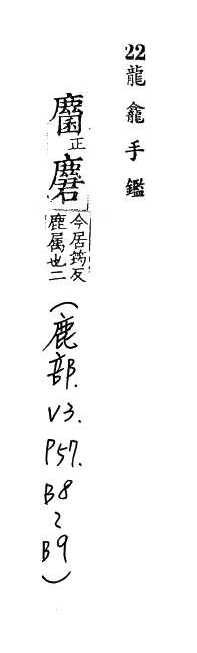 22 龍龕手鑑
麕正麏今居筠反鹿属也二(鹿部. V3. P57. B8~B9)